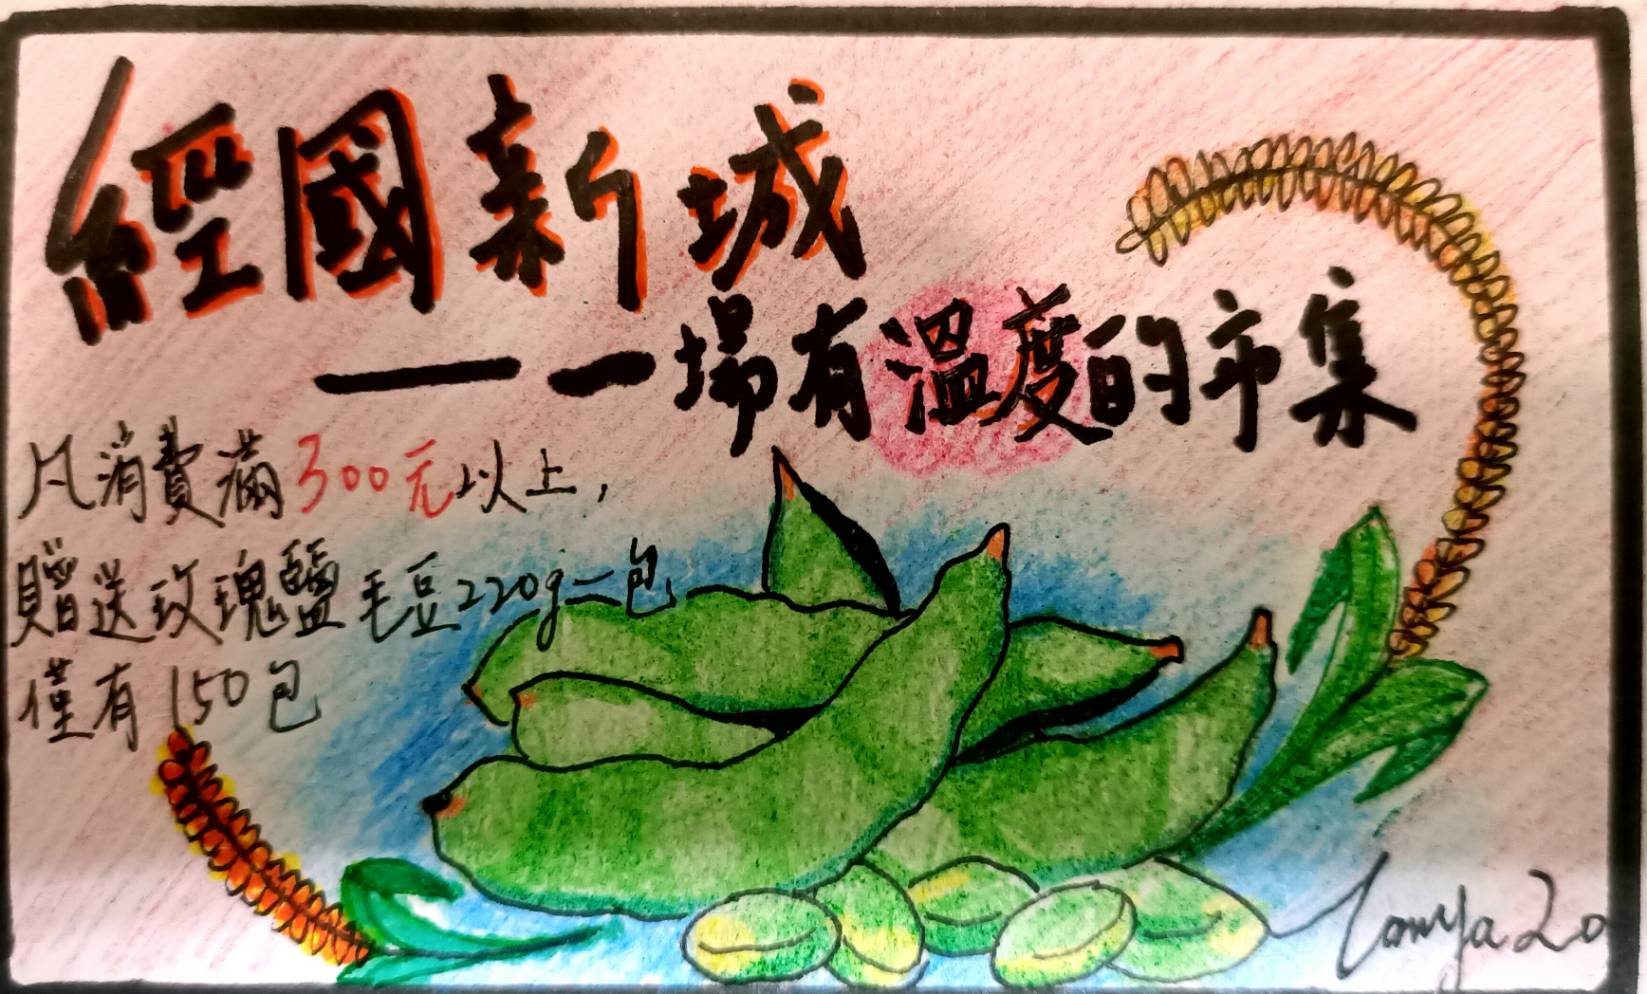 經國新城
——一場有溫度的市集
凡消費滿300元以上,
贈送玫瑰鹽毛豆220g一包
僅有150包
Tanya 20